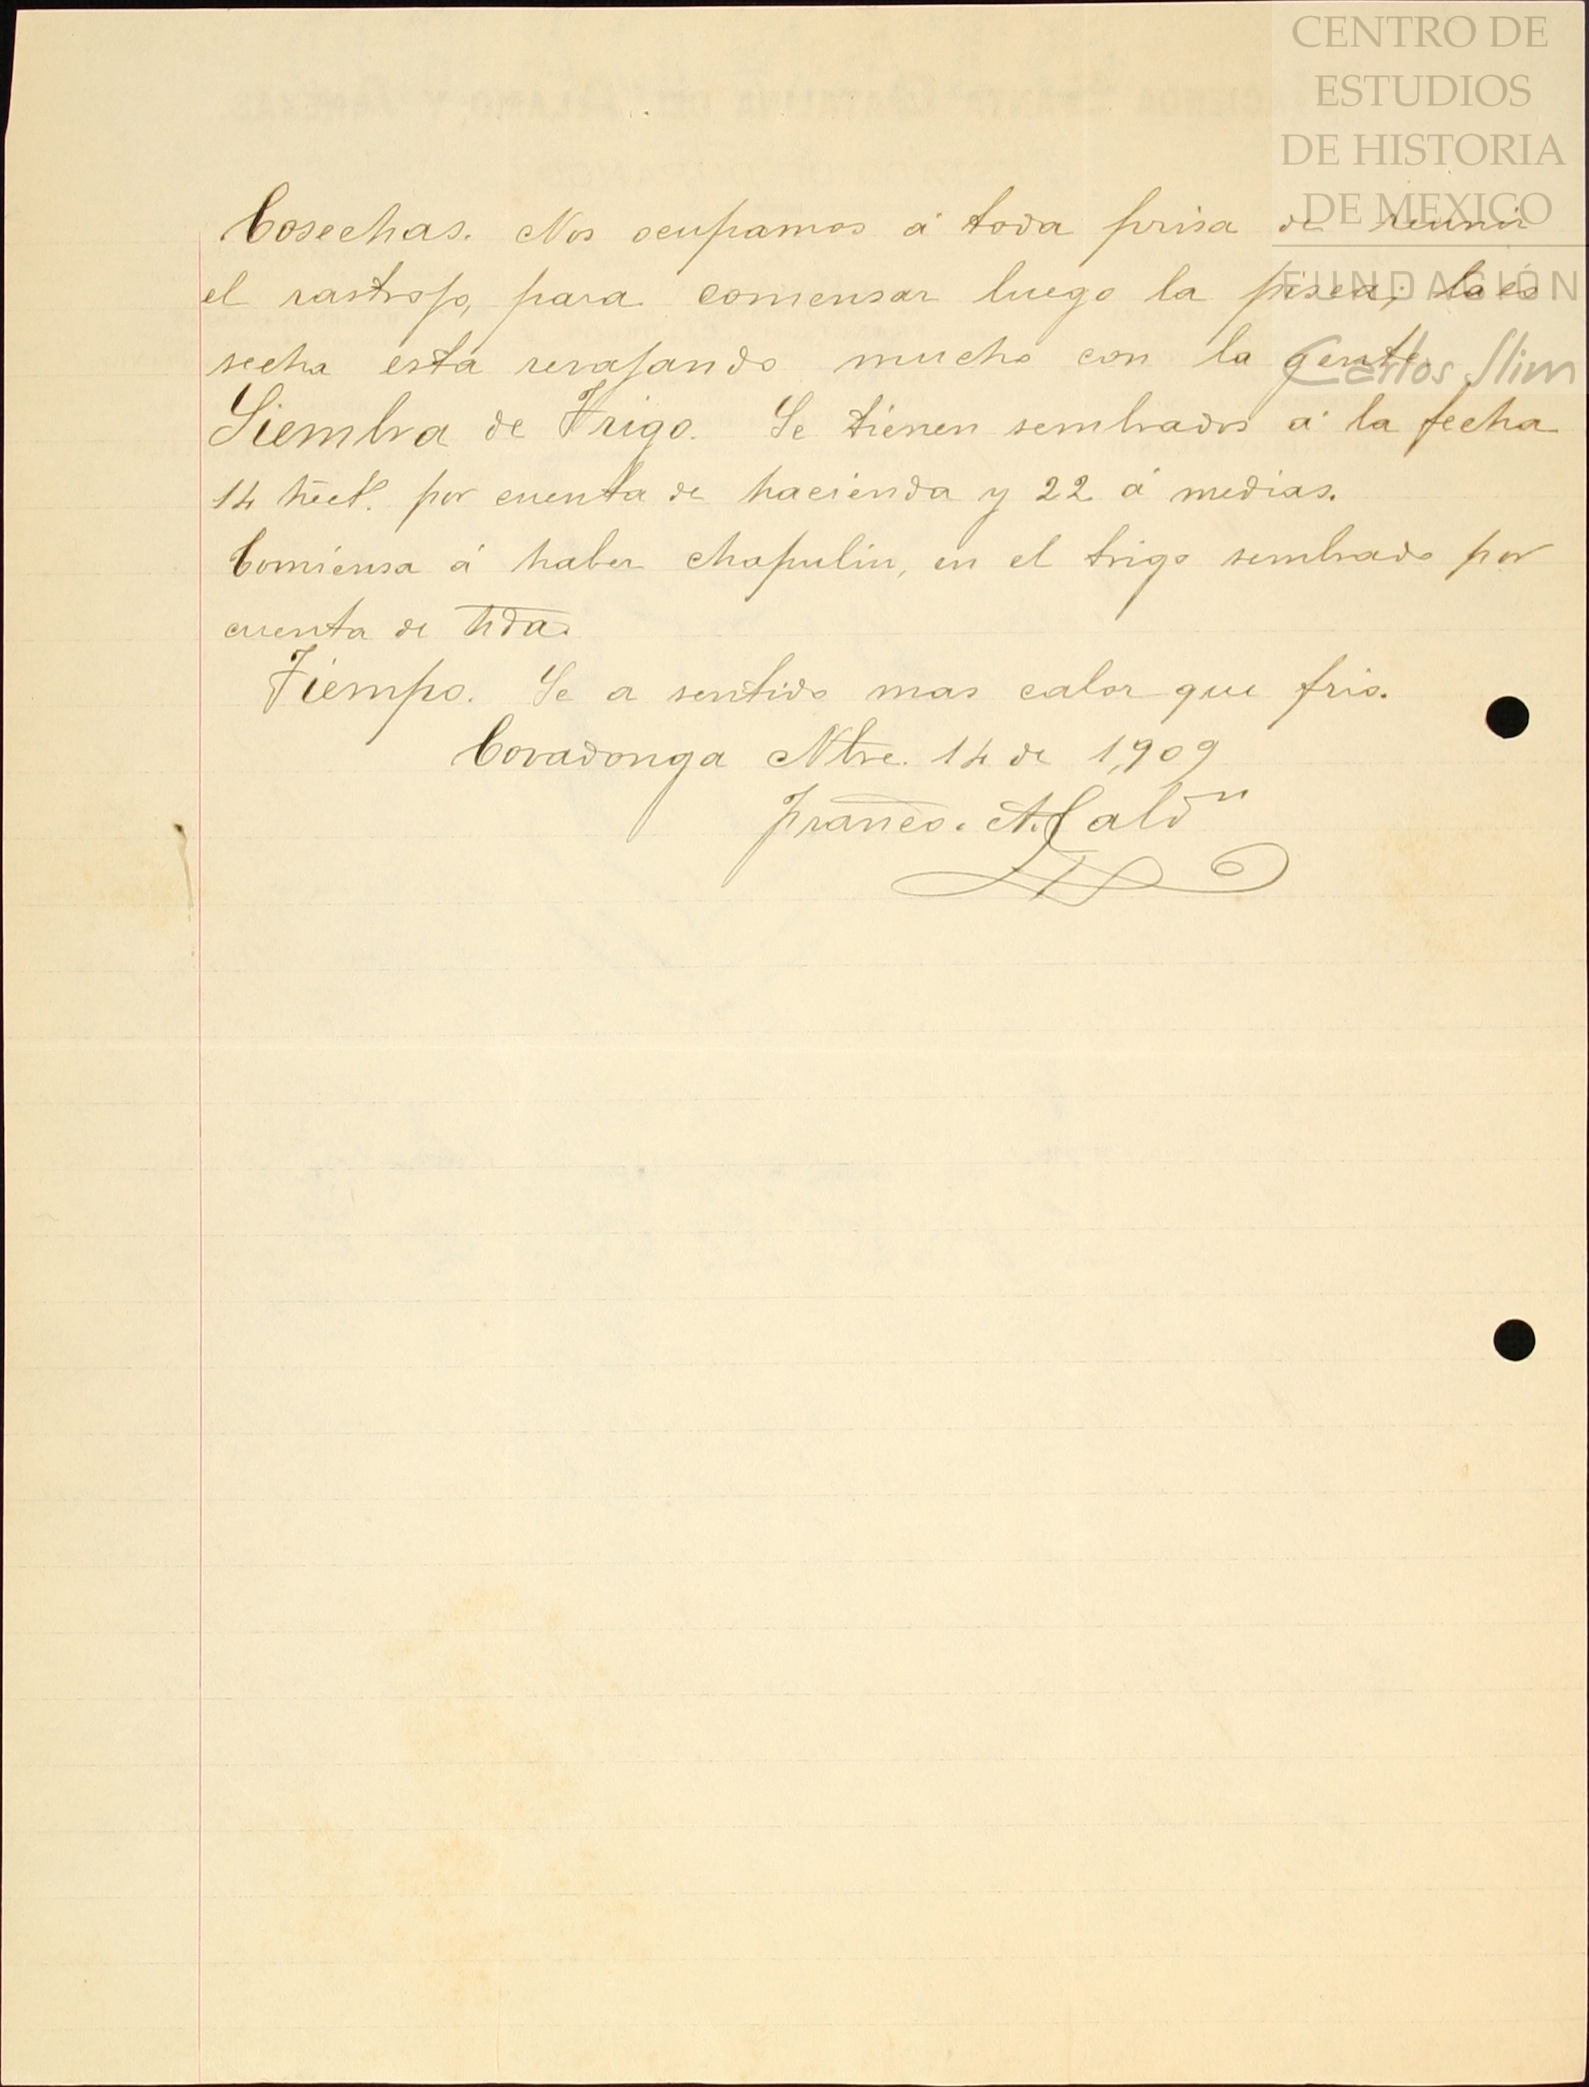 CENTRO DE
ESTUDIOS
DE HISTORIA
DE MEXICO
FUNDACIÓN
Carlos Slim
Cosechas. Nos ocupamos á toda prisa de reunir
el rastrojo, para comensar luego la pisca; la co
secha está revajando mucho con la gente.
Siembra de Trigo. Se tienen sembrados á la fecha
14 hect. por cuenta de hacienda y 22 á medias.
Comiensa á haber chapulin, en el trigo sembrado por
cuenta de hda.
Tiempo. Se a sentido mas calor que frio.
Covadonga Nbre. 14 de 1,909
Franco. A. Cald